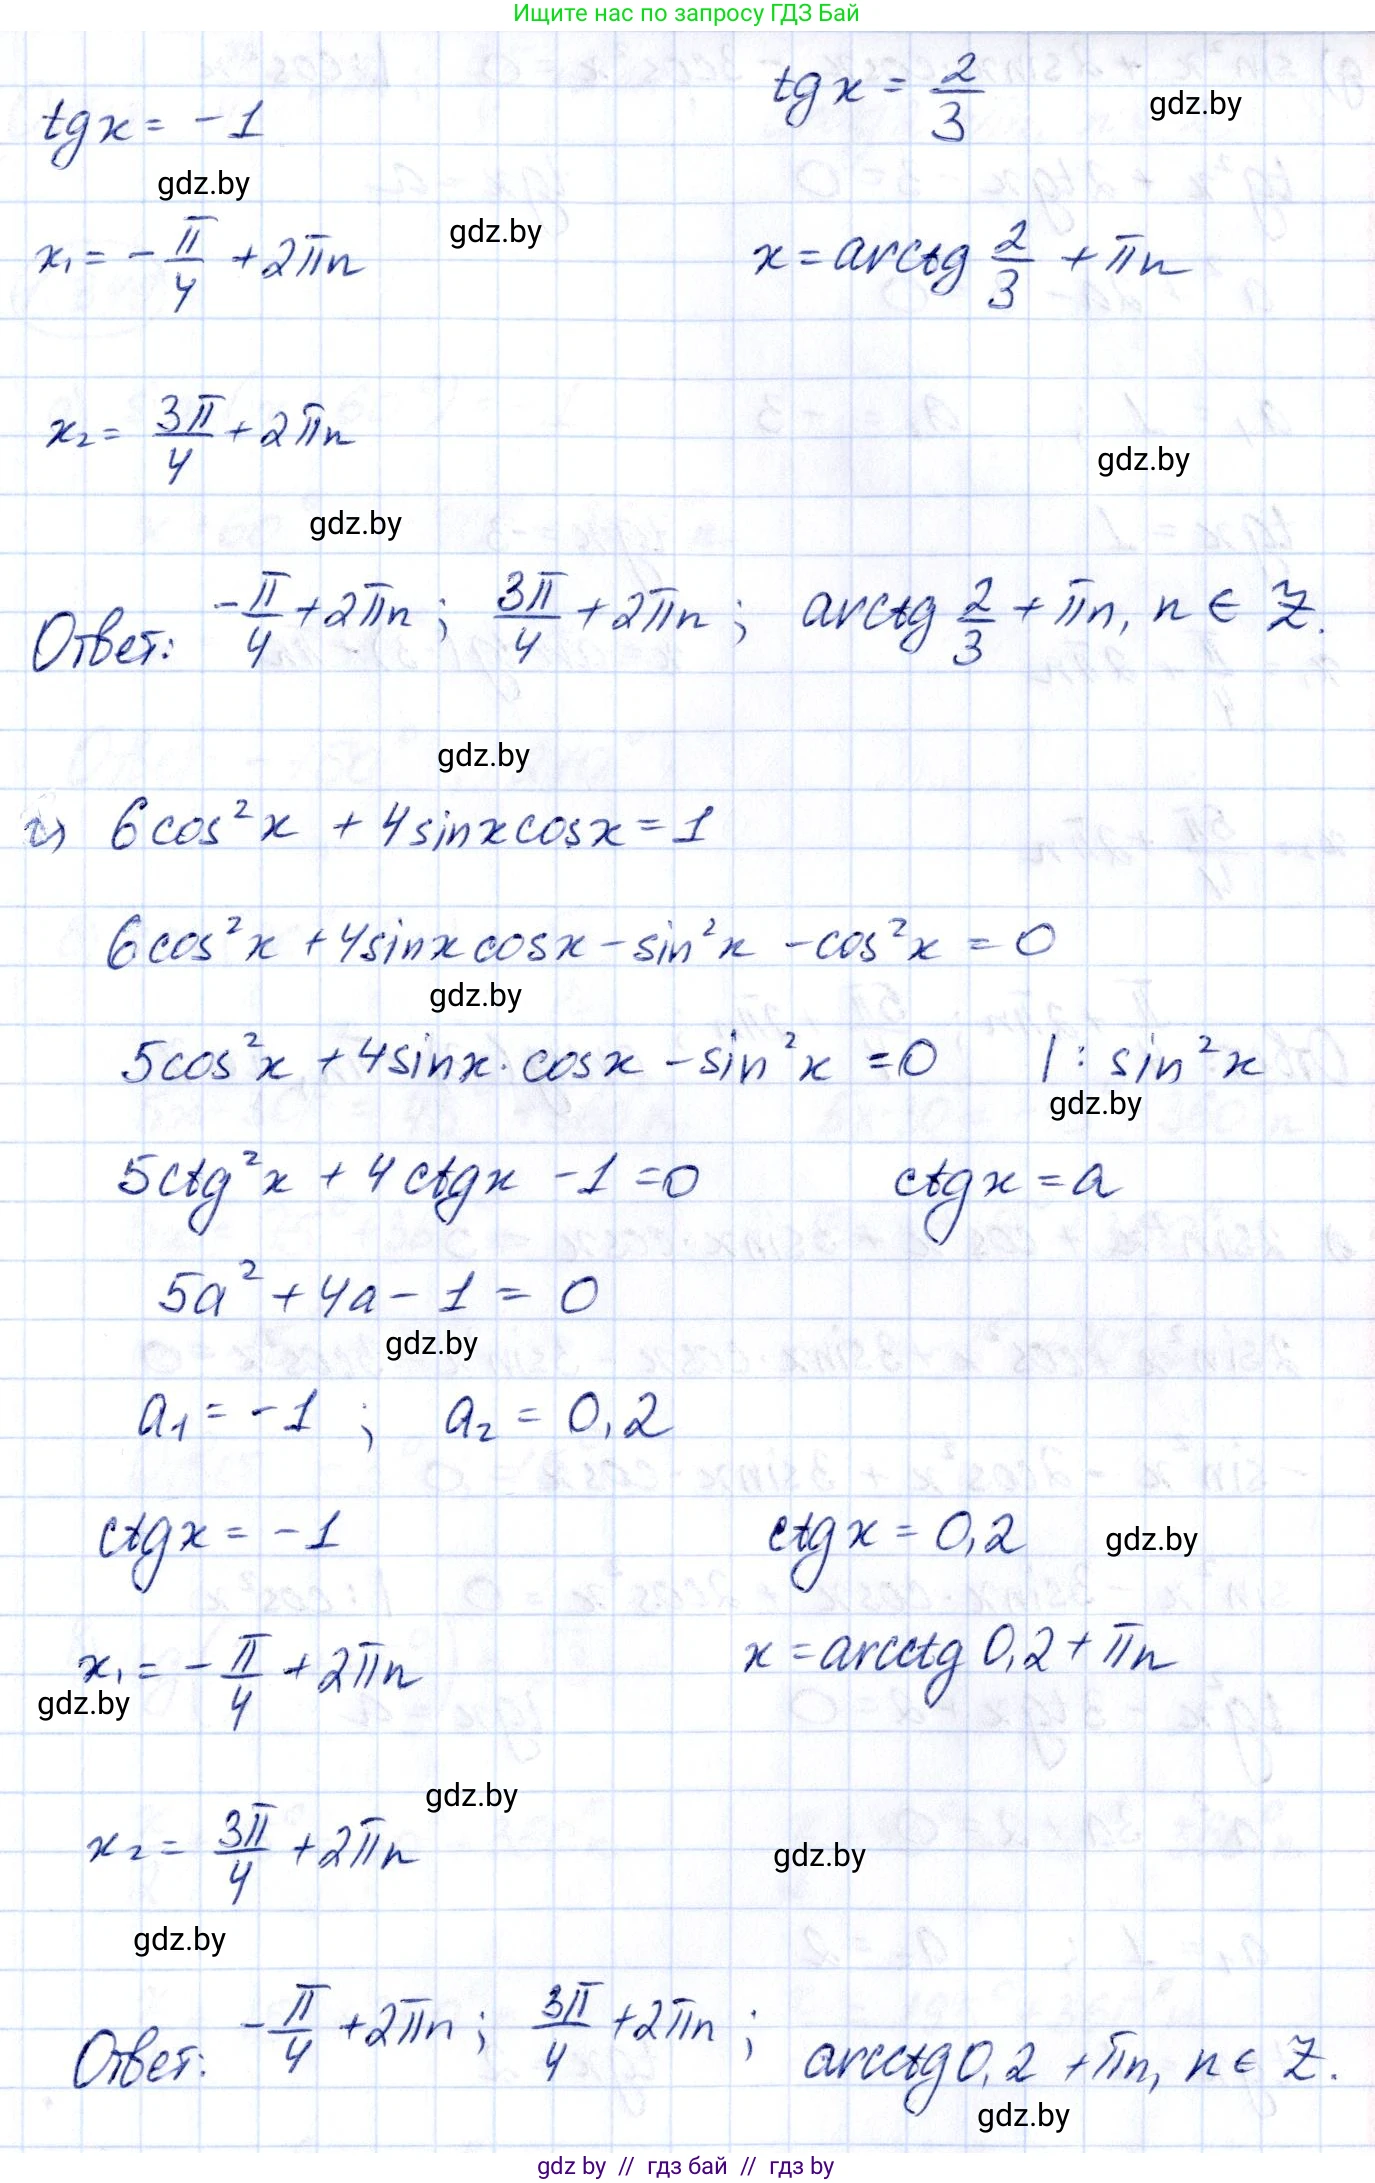 Ищите нас по запросу ГДЗ Бай
tgx = -1
tgx = 2/3
gdz.by
gdz.by
x₁ = -π/4 + 2πn
gdz.by
x = arctg 2/3 + πn
x₂ = 3π/4 + 2πn
gdz.by
gdz.by
Ответ: -π/4 + 2πn; 3π/4 + 2πn; arctg 2/3 + πn, n ∈ Z.
gdz.by
г) 6cos²x + 4sinxcosx = 1
6cos²x + 4sinxcosx - sin²x - cos²x = 0
gdz.by
5cos²x + 4sinx·cosx - sin²x = 0 | : sin²x
gdz.by
5ctg²x + 4ctgx - 1 = 0 ctgx = a
5a² + 4a - 1 = 0
gdz.by
a₁ = -1 ; a₂ = 0,2
ctgx = -1
ctgx = 0,2
gdz.by
x₁ = -π/4 + 2πn
x = arcctg 0,2 + πn
gdz.by
gdz.by
x₂ = 3π/4 + 2πn
gdz.by
gdz.by
Ответ: -π/4 + 2πn; 3π/4 + 2πn; arcctg 0,2 + πn, n ∈ Z.
gdz.by
gdz by // гдз бай // гдз by